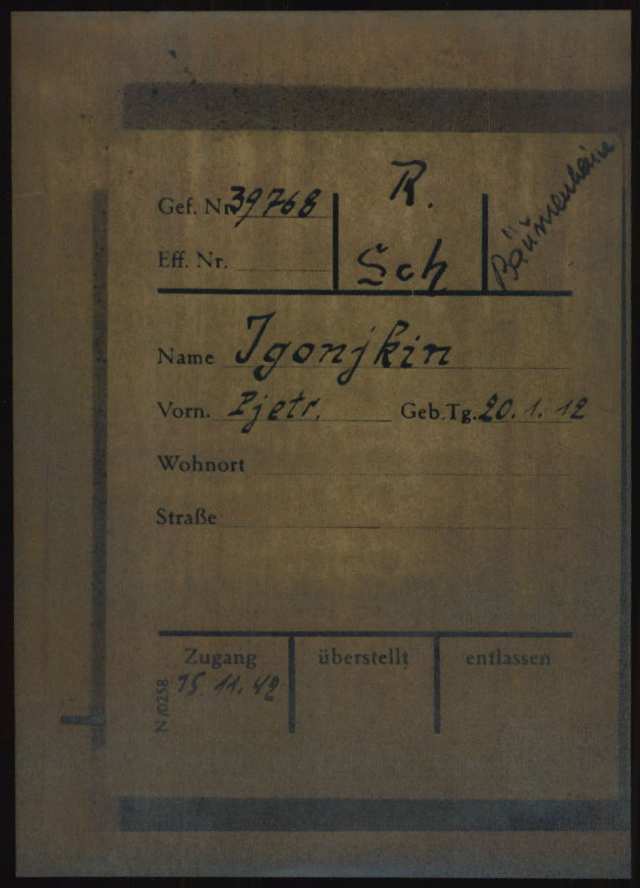 Gef. Nr. 39768
R.
Bäumenheim
Eff. Nr.
Sch
Name Igonjkin
Vorn. Pjetr. Geb.Tg. 20.1.12
Wohnort
Straße
Zugang überstellt entlassen
15 11. 42
N/0258